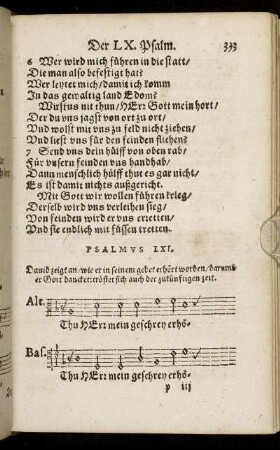 Der LX. Psalm. 333
6 Wer wird mich führen in die statt/
Die man also befestigt hat?
Wer leytet mich/ damit ich komm
In das gewaltig land Edom?
Wirstus nit thun/ HErr Gott mein hort/
Der du vns jagst von ort zu ort/
Vnd wolst mit vns zu feld nicht ziehen/
Vnd liest vns für den feinden fliehen?
7 Send vns dein hülff von oben rab/
Für vnsern feinden vns handhab/
Dann menschlich hülff thut es gar nicht/
Es ist damit nichts außgericht.
Mit Gott wir wollen führen krieg/
Derselb wird vns verleihen sieg/
Von feinden wird er vns erretten/
Vnd sie endlich mit füssen tretten.
PSALMVS LXI.
Dauid zeigt an/ wie er in seinem gebet erhört worden/ darumb
er Gott dancket: tröstet sich auch der zukünfftigen zeit.
Alt.
Thu HErr mein geschrey erhö-
Bas.
Thu HErr mein geschrey erhö-
p iij